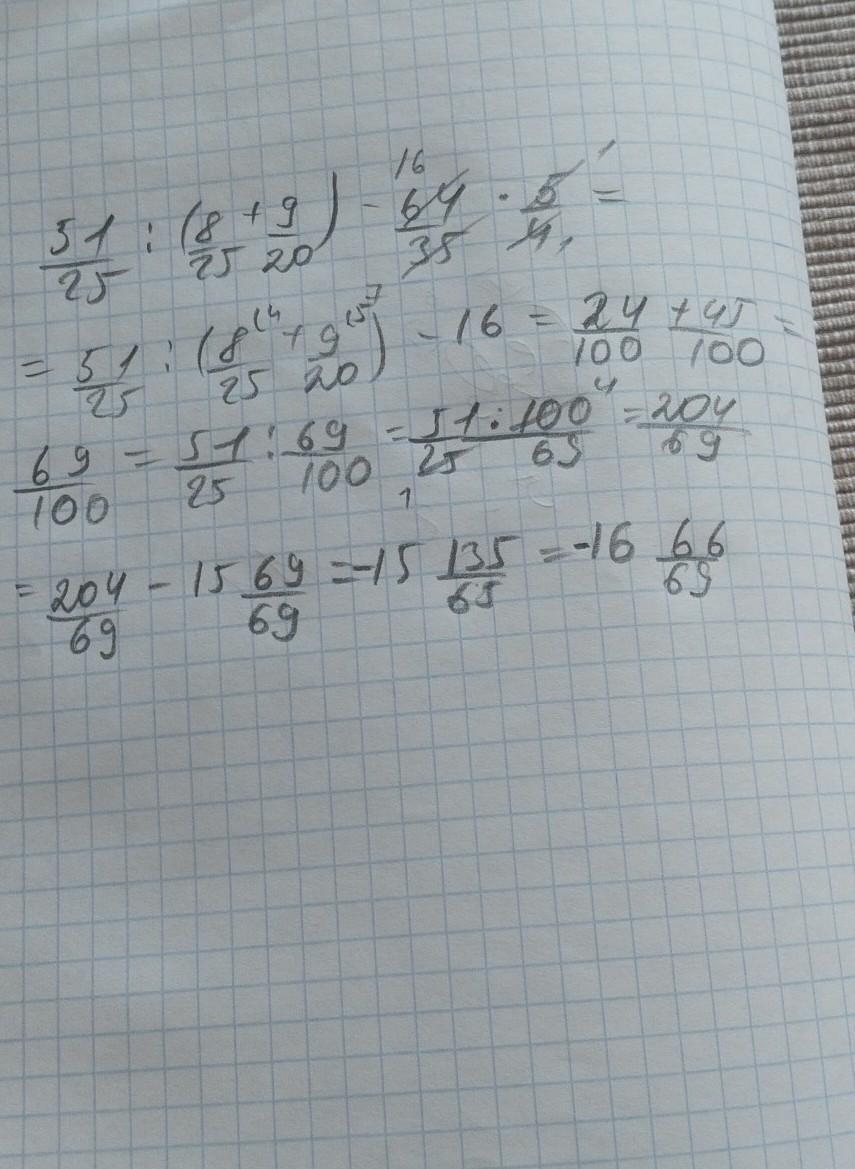 51/25 : (8/25 + 9/20) - 16 64/35 · 5/4 1 1 =
= 51/25 : (8/25 (4 + 9/20 (5) - 16 = 24/100 + 45/100 =
69/100 = 51/25 : 69/100 = 51 : 100 4/25 1 69 = 204/69
= 204/69 - 15 69/69 = -15 135/69 = -16 66/69